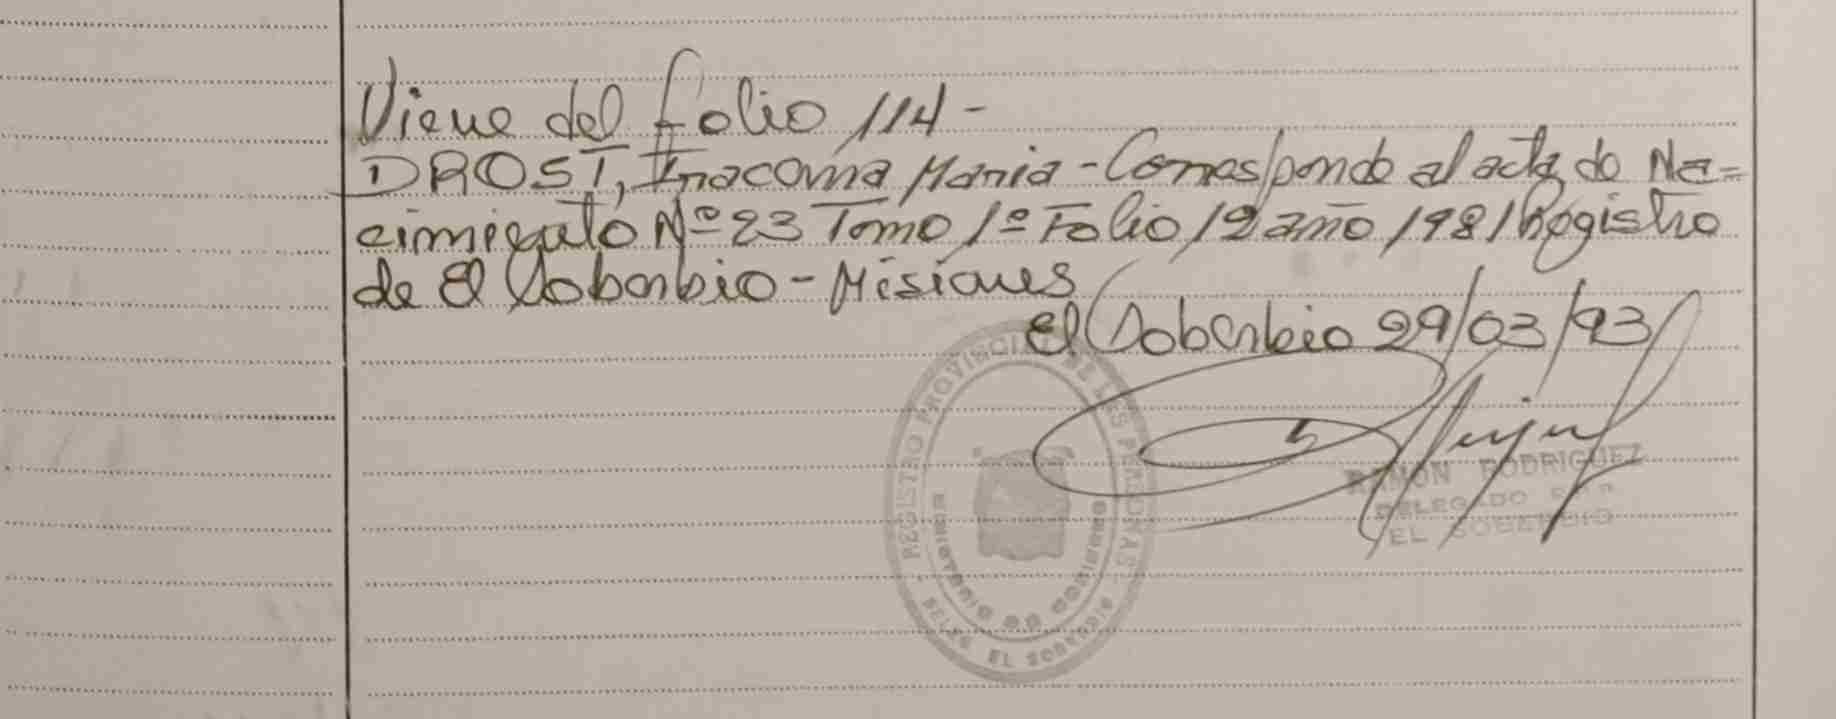 Viene del folio 114 -
DROST, Inocoma Maria - Corresponde al acta de Na=
cimiento Nº 23 Tomo 1º Folio 12 año 1981 Registro
de El Soberbio - Misiones
El Soberbio 29/03/93
REGISTRO PROVINCIAL DE LAS PERSONAS
MINISTERIO DE GOBIERNO
DELEG. EL SOBERBIO
RAMON RODRIGUEZ
DELEGADO
EL SOBERBIO